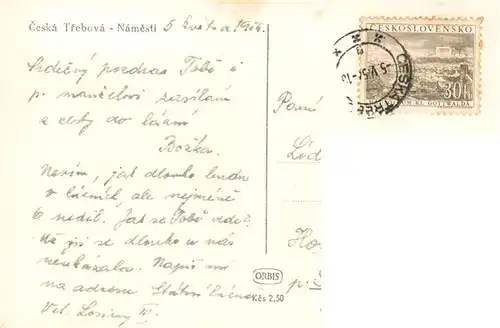 Česká Třebová - Náměstí
5 května 1954.
Srdečný pozdrav Tobě i
p. manželovi zasílám
z cesty do lázní
Božka.
Nevím, jak dlouho budu
v lázních, ale nejméně
6 neděl. Jak se Tobě vede?
Už jsi se dlouho u nás
neukázala. Napiš mi
na adresu Státní lázně
Vel. Losiny III.
ČESKOSLOVENSKO
30h
KL. GOTTWALDA
ČESKÁ TŘEB
-5.V.54-
Paní
Lud
Ho
p.
ORBIS
Kčs 2,50